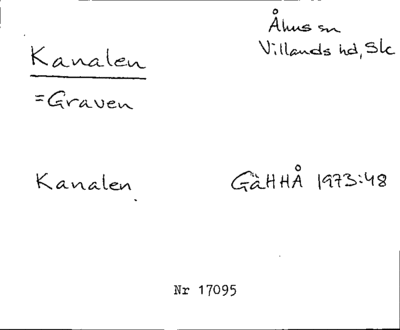 Åhus sn
Villands hd, Sk
Kanalen
=Graven
Kanalen.
GäHHÅ 1973:48
Nr 17095